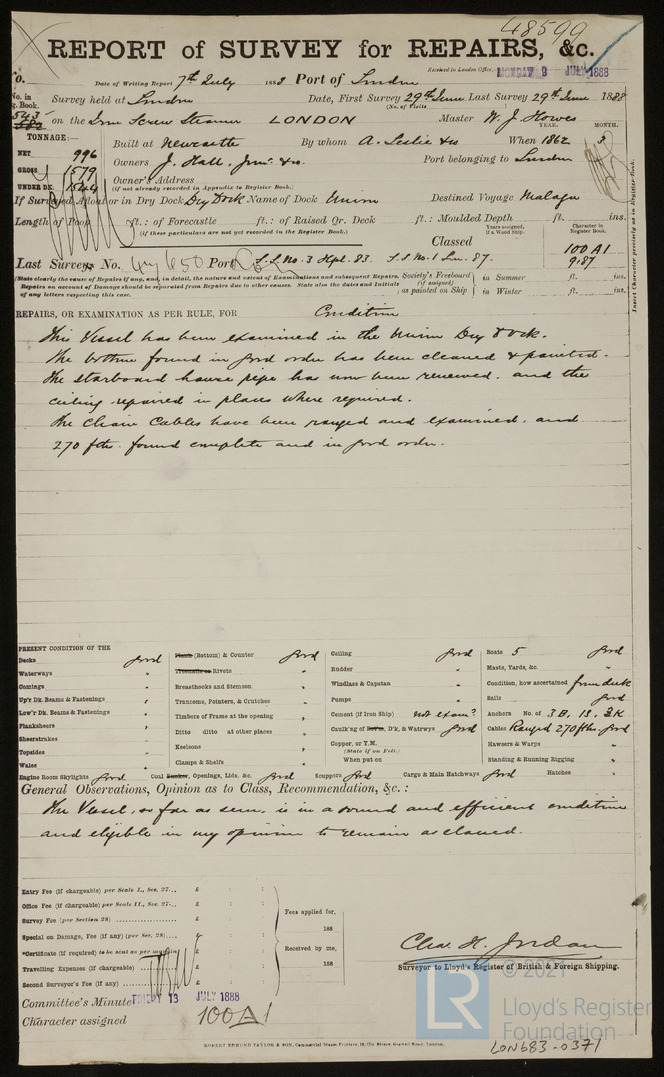 48599
REPORT of SURVEY for REPAIRS, &c.
No.
Date of Writing Report 7th July 1888 Port of London
Received in London Office, MONDAY 9 JULY 1888
No. in Reg. Book.
Survey held at London Date, First Survey 29th June Last Survey 29th June 1888
(No. of Visits )
543
582
on the Iron Screw Steamer LONDON Master W. J. Howes
TONNAGE:—
YEAR. MONTH.
Built at Newcastle By whom A. Leslie & Co When 1862 3
NET 996
Owners J. Hall, Junr. & Co. Port belonging to London
GROSS 1579
Owner's Address
UNDER DK. 1544
(if not already recorded in Appendix to Register Book.)
If Surveyed Afloat or in Dry Dock Dry Dock Name of Dock Union Destined Voyage Malaga
Length of Poop ft.: of Forecastle ft.: of Raised Qr. Deck ft.: Moulded Depth ft. ins.
(if these particulars are not yet recorded in the Register Book.)
Years assigned, if a Wood Ship.
Character in Register Book.
Classed
100 A1
9.87
Last Survey No. 650 Port S.S. No. 3 Spl. 83. S.S. No. 1 Lon. 87.
(State clearly the cause of Repairs if any, and, in detail, the nature and extent of Examinations and subsequent Repairs. Repairs on account of Damage should be separated from Repairs due to other causes. State also the dates and Initials of any letters respecting this case.
Society's Freeboard (if assigned) as painted on Ship
in Summer ft. ins.
in Winter ft. ins.
Insert Character precisely as in Register Book.
REPAIRS, OR EXAMINATION AS PER RULE, FOR Condition
This Vessel has been examined in the Union Dry Dock.
The bottom found in good order has been cleaned & painted.
The starboard hawse pipe has now been renewed. and the
ceiling repaired in places where required.
The Chain Cables have been ranged and examined. and
270 fths. found complete and in good order.
PRESENT CONDITION OF THE
Decks good
Waterways "
Comings "
Up'r Dk. Beams & Fastenings "
Low'r Dk. Beams & Fastenings "
Planksheers "
Sheerstrakes "
Topsides "
Wales "
Engine Room Skylights good
Plank (Bottom) & Counter good
Treenails or Rivets "
Breasthooks and Stemson "
Transoms, Pointers, & Crutches "
Timbers of Frame at the opening "
Ditto ditto at other places "
Keelsons "
Clamps & Shelfs "
Coal Bunker, Openings, Lids, &c. good
Ceiling good
Rudder "
Windlass & Capstan "
Pumps "
Cement (if Iron Ship) not exam?
Caulk'ng of Bottm, D'k, & Watrwys good
Copper, or Y.M.
(State if on Felt.)
When put on
Scuppers good
Cargo & Main Hatchways good
Boats 5 good
Masts, Yards, &c. "
Condition, how ascertained from deck
Sails good
Anchors No. of 3B, 1S, 2K
Cables Ranged 270 fths. good
Hawsers & Warps "
Standing & Running Rigging "
Hatches "
General Observations, Opinion as to Class, Recommendation, &c.:
This Vessel, so far as seen, is in a sound and efficient condition
and eligible in my opinion to remain as classed.
Entry Fee (if chargeable) per Scale I., Sec. 27... £ : :
Office Fee (if chargeable) per Scale II., Sec. 27... £ : :
Survey Fee (per Section 28) £ : :
Special on Damage, Fee (if any) (per Sec. 28)... £ : :
*Certificate (if required) to be sent as per margin £ : :
Travelling Expenses (if chargeable) £ : :
Second Surveyor's Fee (if any) £ : :
Fees applied for,
188
Received by me,
188
Chas. H. Jordan
Surveyor to Lloyd's Register of British & Foreign Shipping.
Committee's Minute FRIDAY 13 JULY 1888
Character assigned 100 A1
ROBERT EDMUND TAYLOR & SON, Commercial Steam Printers, 19, Old Street, Goswell Road, London.
© 2021
LR
Lloyd's Register
Foundation
LON683-0371